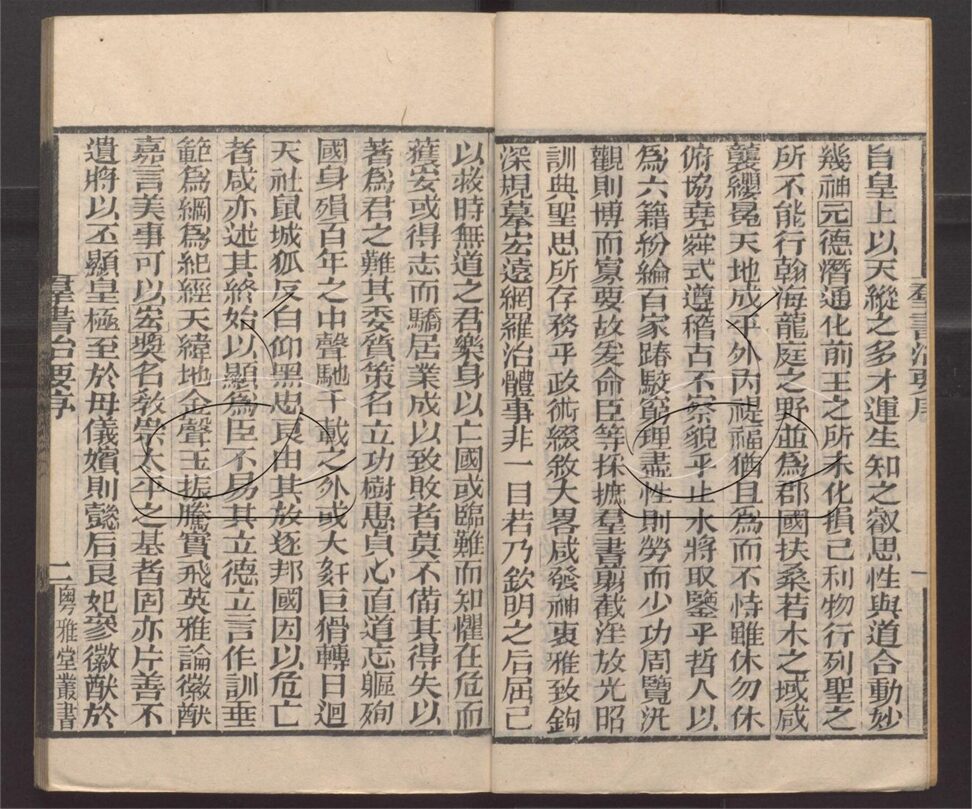 旨皇上以天縱之多才運生知之叡思性與道合動妙
幾神元德潛通化前王之所未化損己利物行列聖之
所不能行翰海龍庭之野並爲郡國扶桑若木之域咸
襲纓冕天地成平外內禔福猶且爲而不恃雖休勿休
俯協堯舜式遵稽古不察貌乎止水將取鑒乎哲人以
爲六籍紛綸百家踳駮窮理盡性則勞而少功周覽汎
觀則博而寡要故爰命臣等採摭羣書翦截淫放光昭
訓典聖思所存務乎政術綴敘大畧咸發神衷雅致鉤
深規摹宏遠網羅治體事非一目若乃欽明之后屈己
以救時無道之君樂身以亡國或臨難而知懼在危而
獲安或得志而驕居業成以致敗者莫不備其得失以
著爲君之難其委質策名立功樹惠貞心直道忘軀殉
國身殞百年之中聲馳千載之外或大奸巨猾轉日迴
天社鼠城狐反白仰黑忠良由其放逐邦國因以危亡
者咸亦述其終始以顯爲臣不易其立德立言作訓垂
範爲綱爲紀經天緯地金聲玉振騰實飛英雅論徽猷
嘉言美事可以宏奬名敎崇太平之基者固亦片善不
遺將以丕顯皇極至於母儀嬪則懿后良妃參徽猷於
羣書治要序
二
粵雅堂叢書